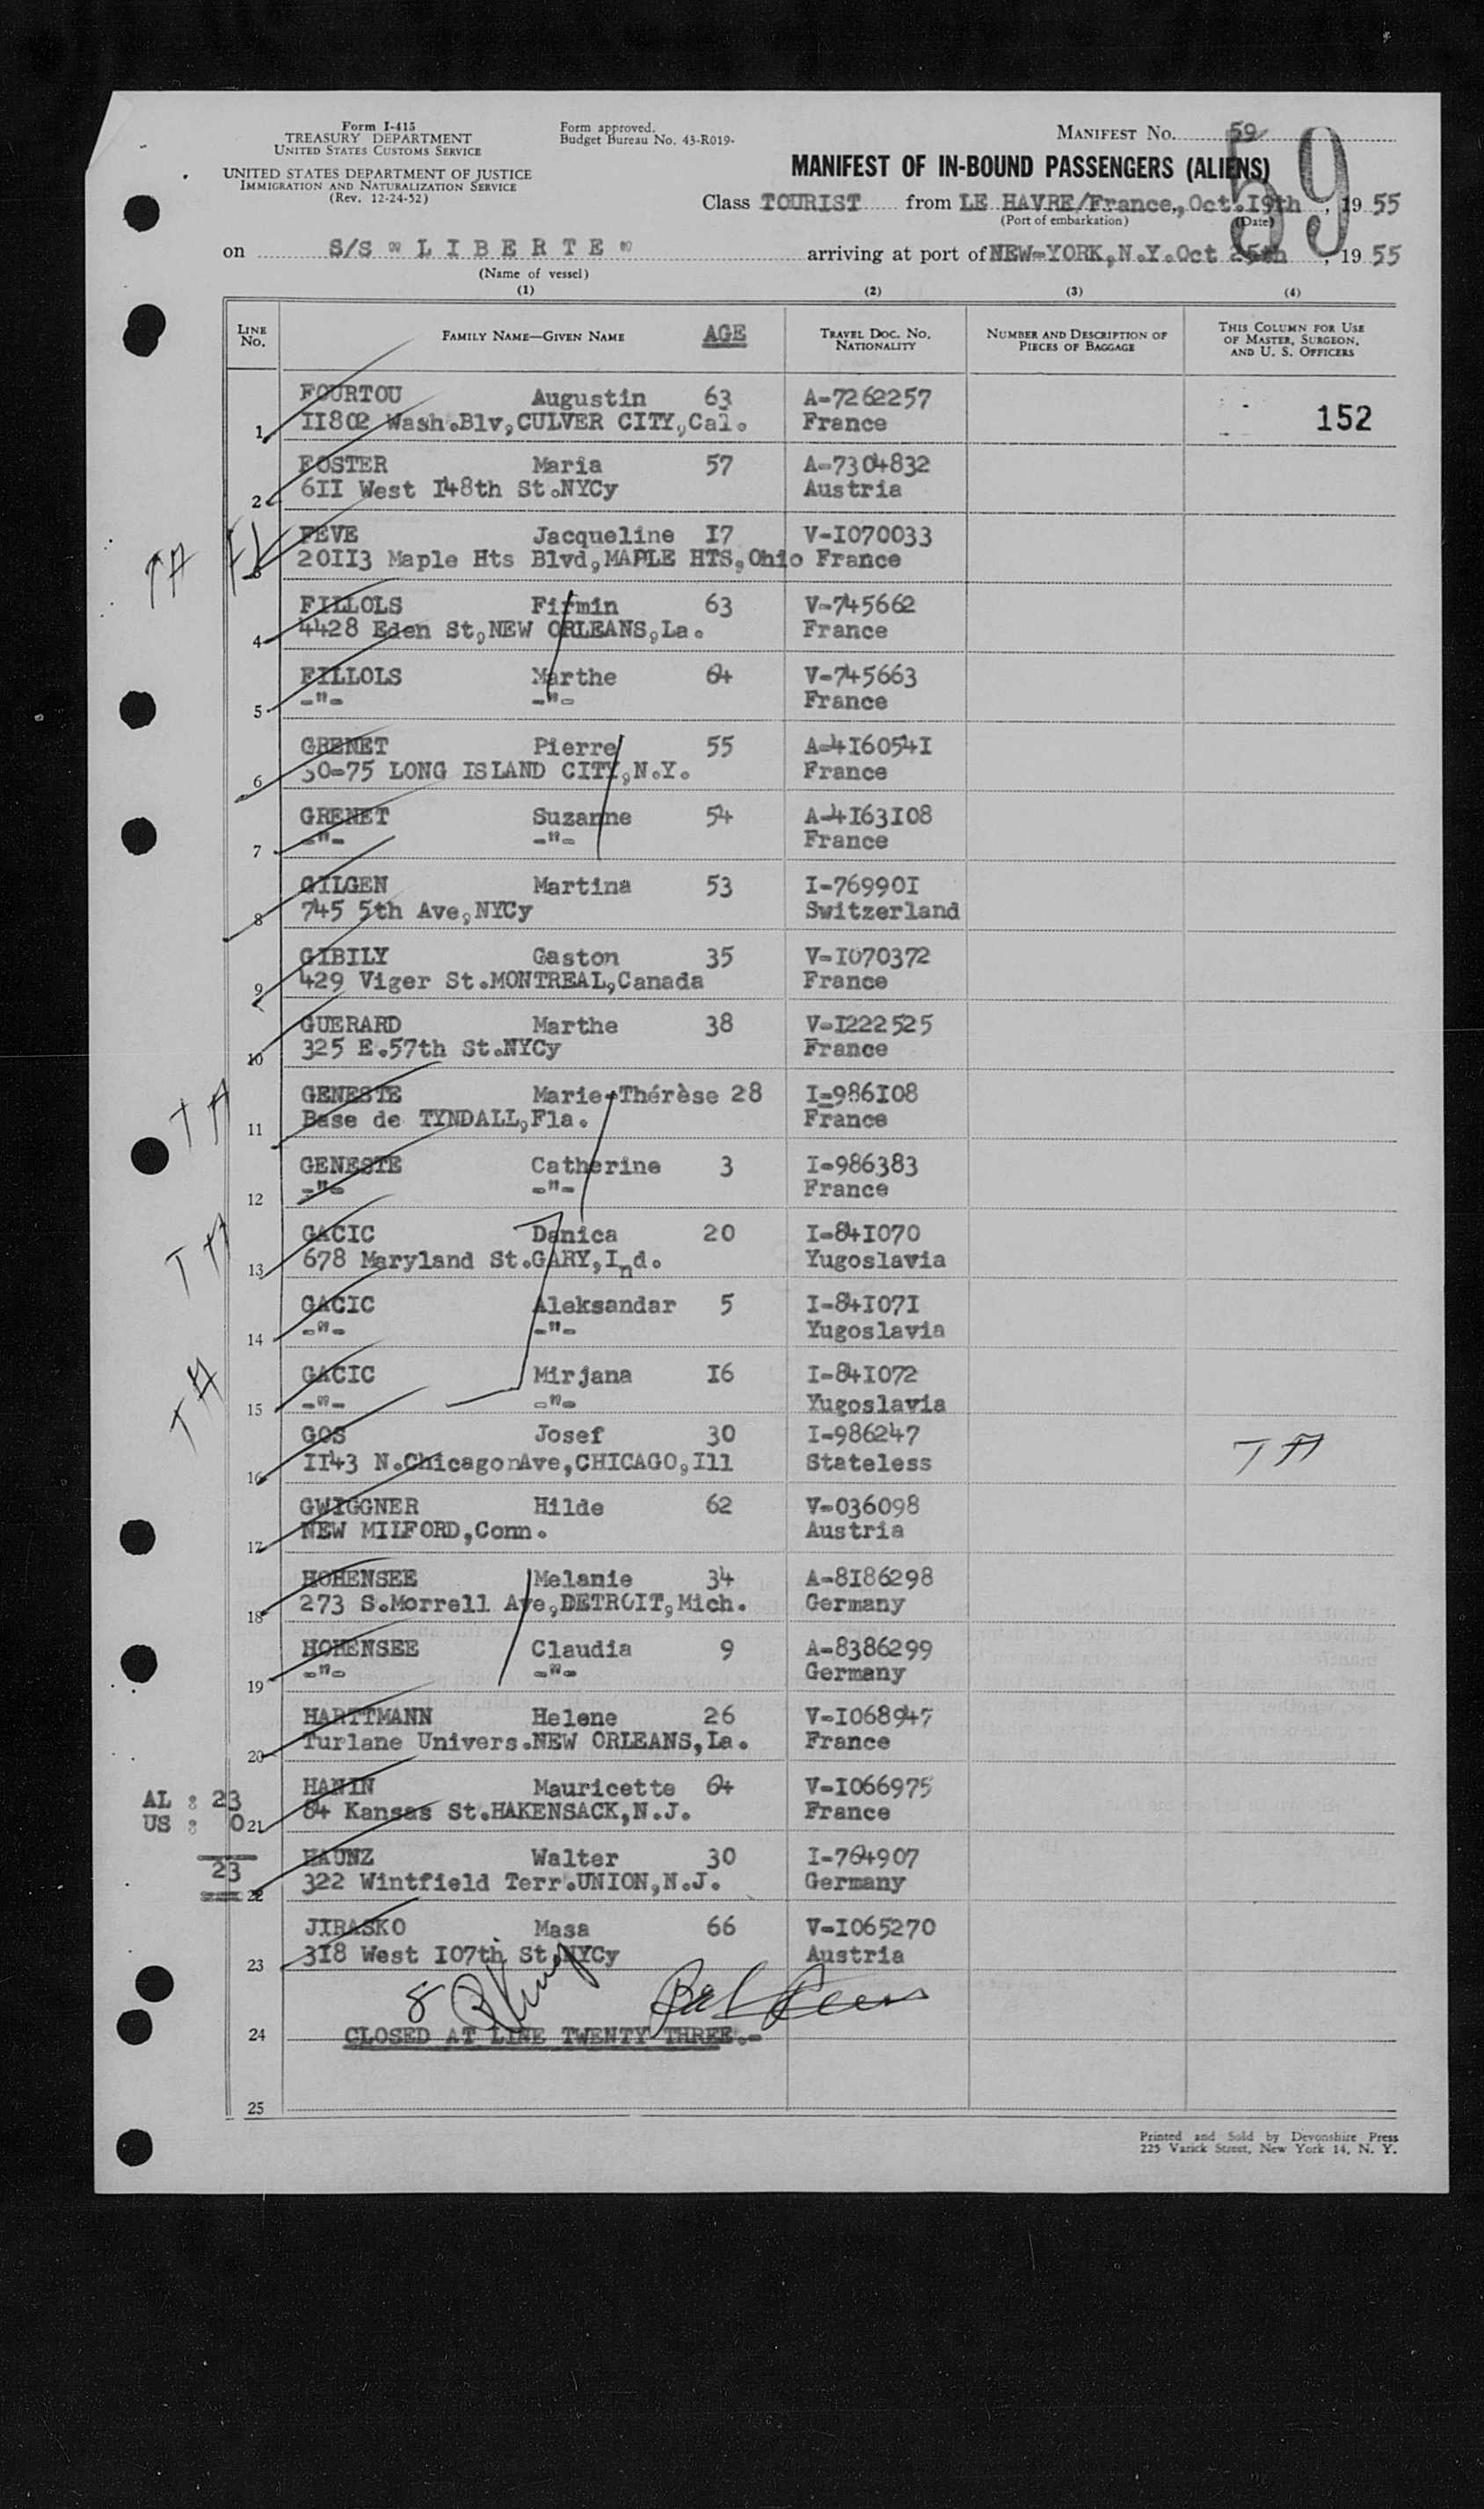 Form I-415
TREASURY DEPARTMENT
UNITED STATES CUSTOMS SERVICE
UNITED STATES DEPARTMENT OF JUSTICE
IMMIGRATION AND NATURALIZATION SERVICE
(Rev. 12-24-52)
Form approved.
Budget Bureau No. 43-R019-
MANIFEST NO. 59
59
MANIFEST OF IN-BOUND PASSENGERS (ALIENS)
Class TOURIST from LE HAVRE/France, Oct.I9th, 19 55
(Port of embarkation) (Date)
on S/S " L I B E R T E " arriving at port of NEW-YORK,N.Y.Oct 25th, 19 55
(Name of vessel)
(1) (2) (3) (4)
LINE NO. FAMILY NAME—GIVEN NAME AGE TRAVEL DOC. NO. NATIONALITY NUMBER AND DESCRIPTION OF PIECES OF BAGGAGE THIS COLUMN FOR USE OF MASTER, SURGEON, AND U. S. OFFICERS
FOURTOU Augustin 63 A-7262257
1 II802 Wash.Blv,CULVER CITY,Cal. France 152
FOSTER Maria 57 A-7304832
2 6II West I48th St.NYCy Austria
FEVE Jacqueline I7 V-I070033
TA 3 20II3 Maple Hts Blvd,MAPLE HTS,Ohio France
FILLOLS Firmin 63 V-745662
4 4428 Eden St,NEW ORLEANS,La. France
FILLOLS Marthe 64 V-745663
5 -"- -"- France
GRENET Pierre 55 A-4I6054I
6 30-75 LONG ISLAND CITY,N.Y. France
GRENET Suzanne 54 A-4I63I08
7 -"- -"- France
GILGEN Martina 53 I-76990I
8 745 5th Ave,NYCy Switzerland
GIBILY Gaston 35 V-I070372
9 429 Viger St.MONTREAL,Canada France
GUERARD Marthe 38 V-I222525
10 325 E.57th St.NYCy France
TA GENESTE Marie-Thérèse 28 I-986I08
11 Base de TYNDALL,Fla. France
GENESTE Catherine 3 I-986383
12 -"- -"- France
TA GACIC Danica 20 I-84I070
13 678 Maryland St.GARY,Ind. Yugoslavia
GACIC Aleksandar 5 I-84I07I
14 -"- -"- Yugoslavia
TA GACIC Mirjana I6 I-84I072
15 -"- -"- Yugoslavia
GOS Josef 30 I-986247 TA
16 II43 N.ChicagonAve,CHICAGO,Ill Stateless
GWIGGNER Hilde 62 V-036098
17 NEW MILFORD,Conn. Austria
HOHENSEE Melanie 34 A-8I86298
18 273 S.Morrell Ave,DETROIT,Mich. Germany
HOHENSEE Claudia 9 A-8386299
19 -"- -"- Germany
HARTTMANN Helene 26 V-I068947
20 Turlane Univers.NEW ORLEANS,La. France
AL : 23 HANIN Mauricette 64 V-I066975
US : 0 21 84 Kansas St.HAKENSACK,N.J. France
23 HAUNZ Walter 30 I-764907
22 322 Wintfield Terr.UNION,N.J. Germany
JIRASKO Masa 66 V-I065270
23 3I8 West I07th St.NYCy Austria
8
24 CLOSED AT LINE TWENTY THREE.-
25
Printed and Sold by Devonshire Press
225 Varick Street, New York 14, N. Y.